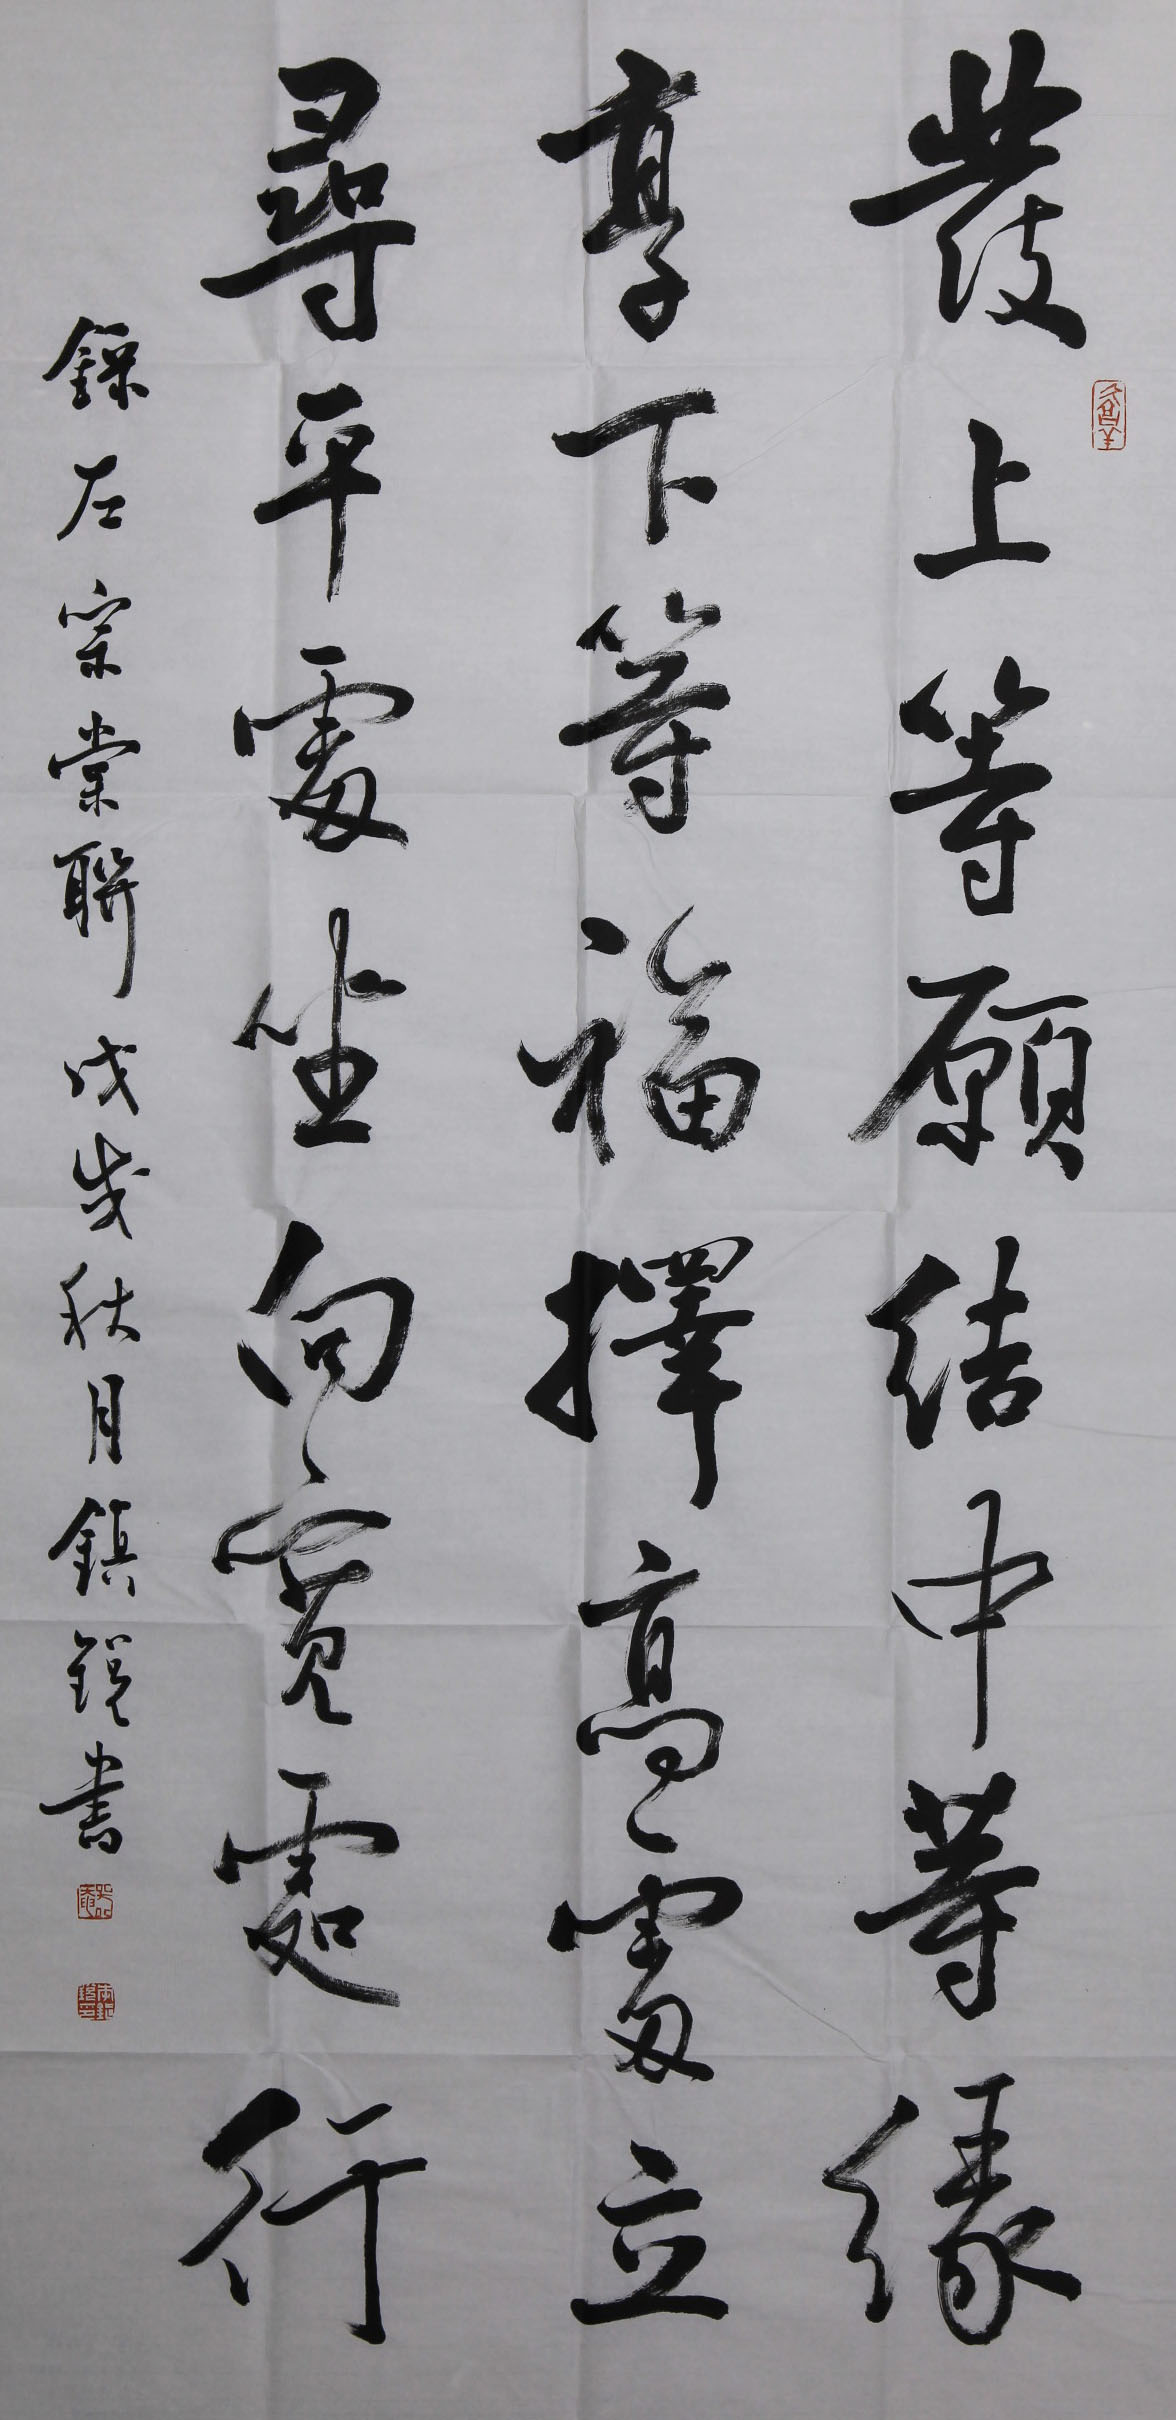 發上等願結中等緣
享下等福擇高處立
尋平處坐向寬處行
錄左宗棠聯戊戌秋月鎮鋭書